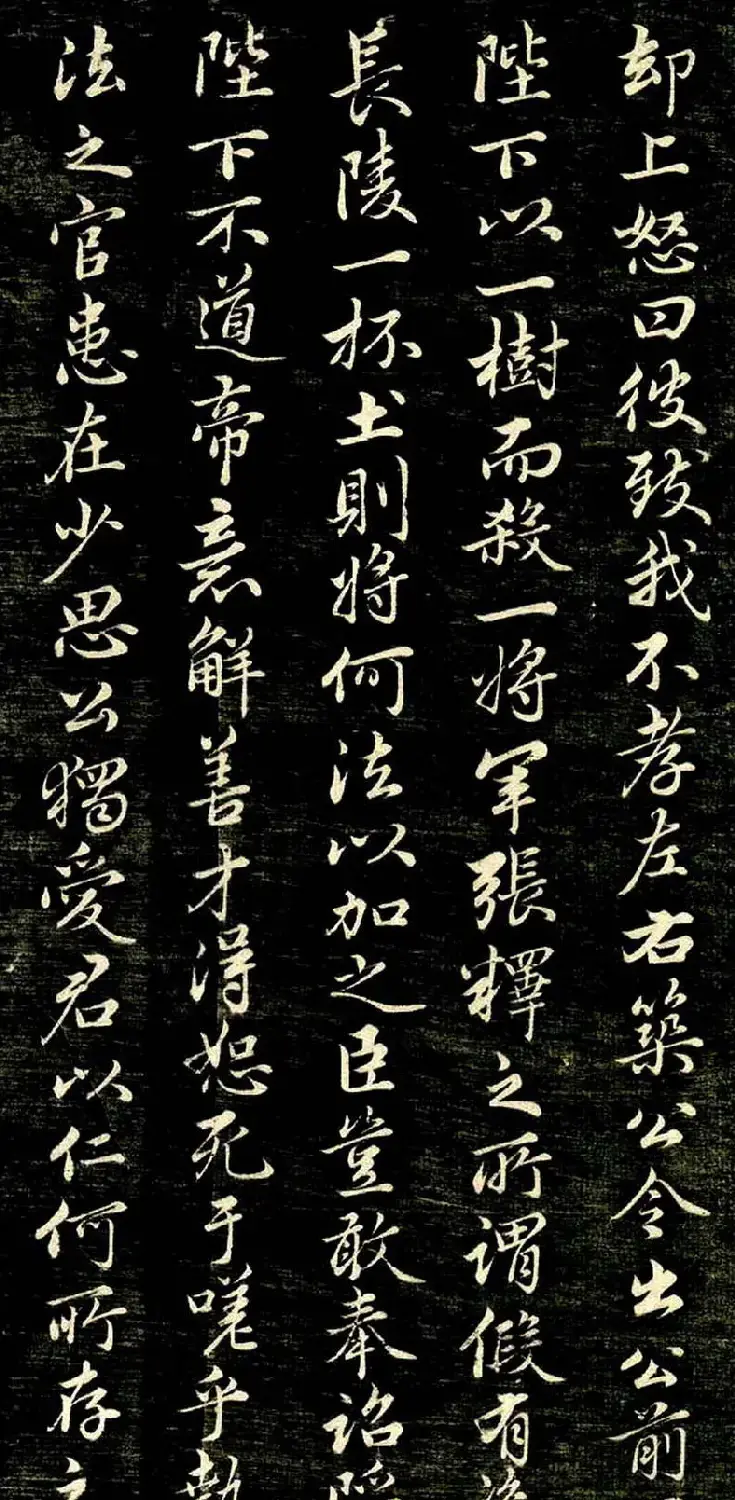 却上怒曰彼致我不孝左右築公令出公前
陛下以一樹而殺一將軍張釋之所謂假有盜
長陵一抔土則將何法以加之臣豈敢奉詔陷
陛下不道帝意解善才得恕死于嗟乎執
法之官患在少恩公獨愛君以仁何所存之